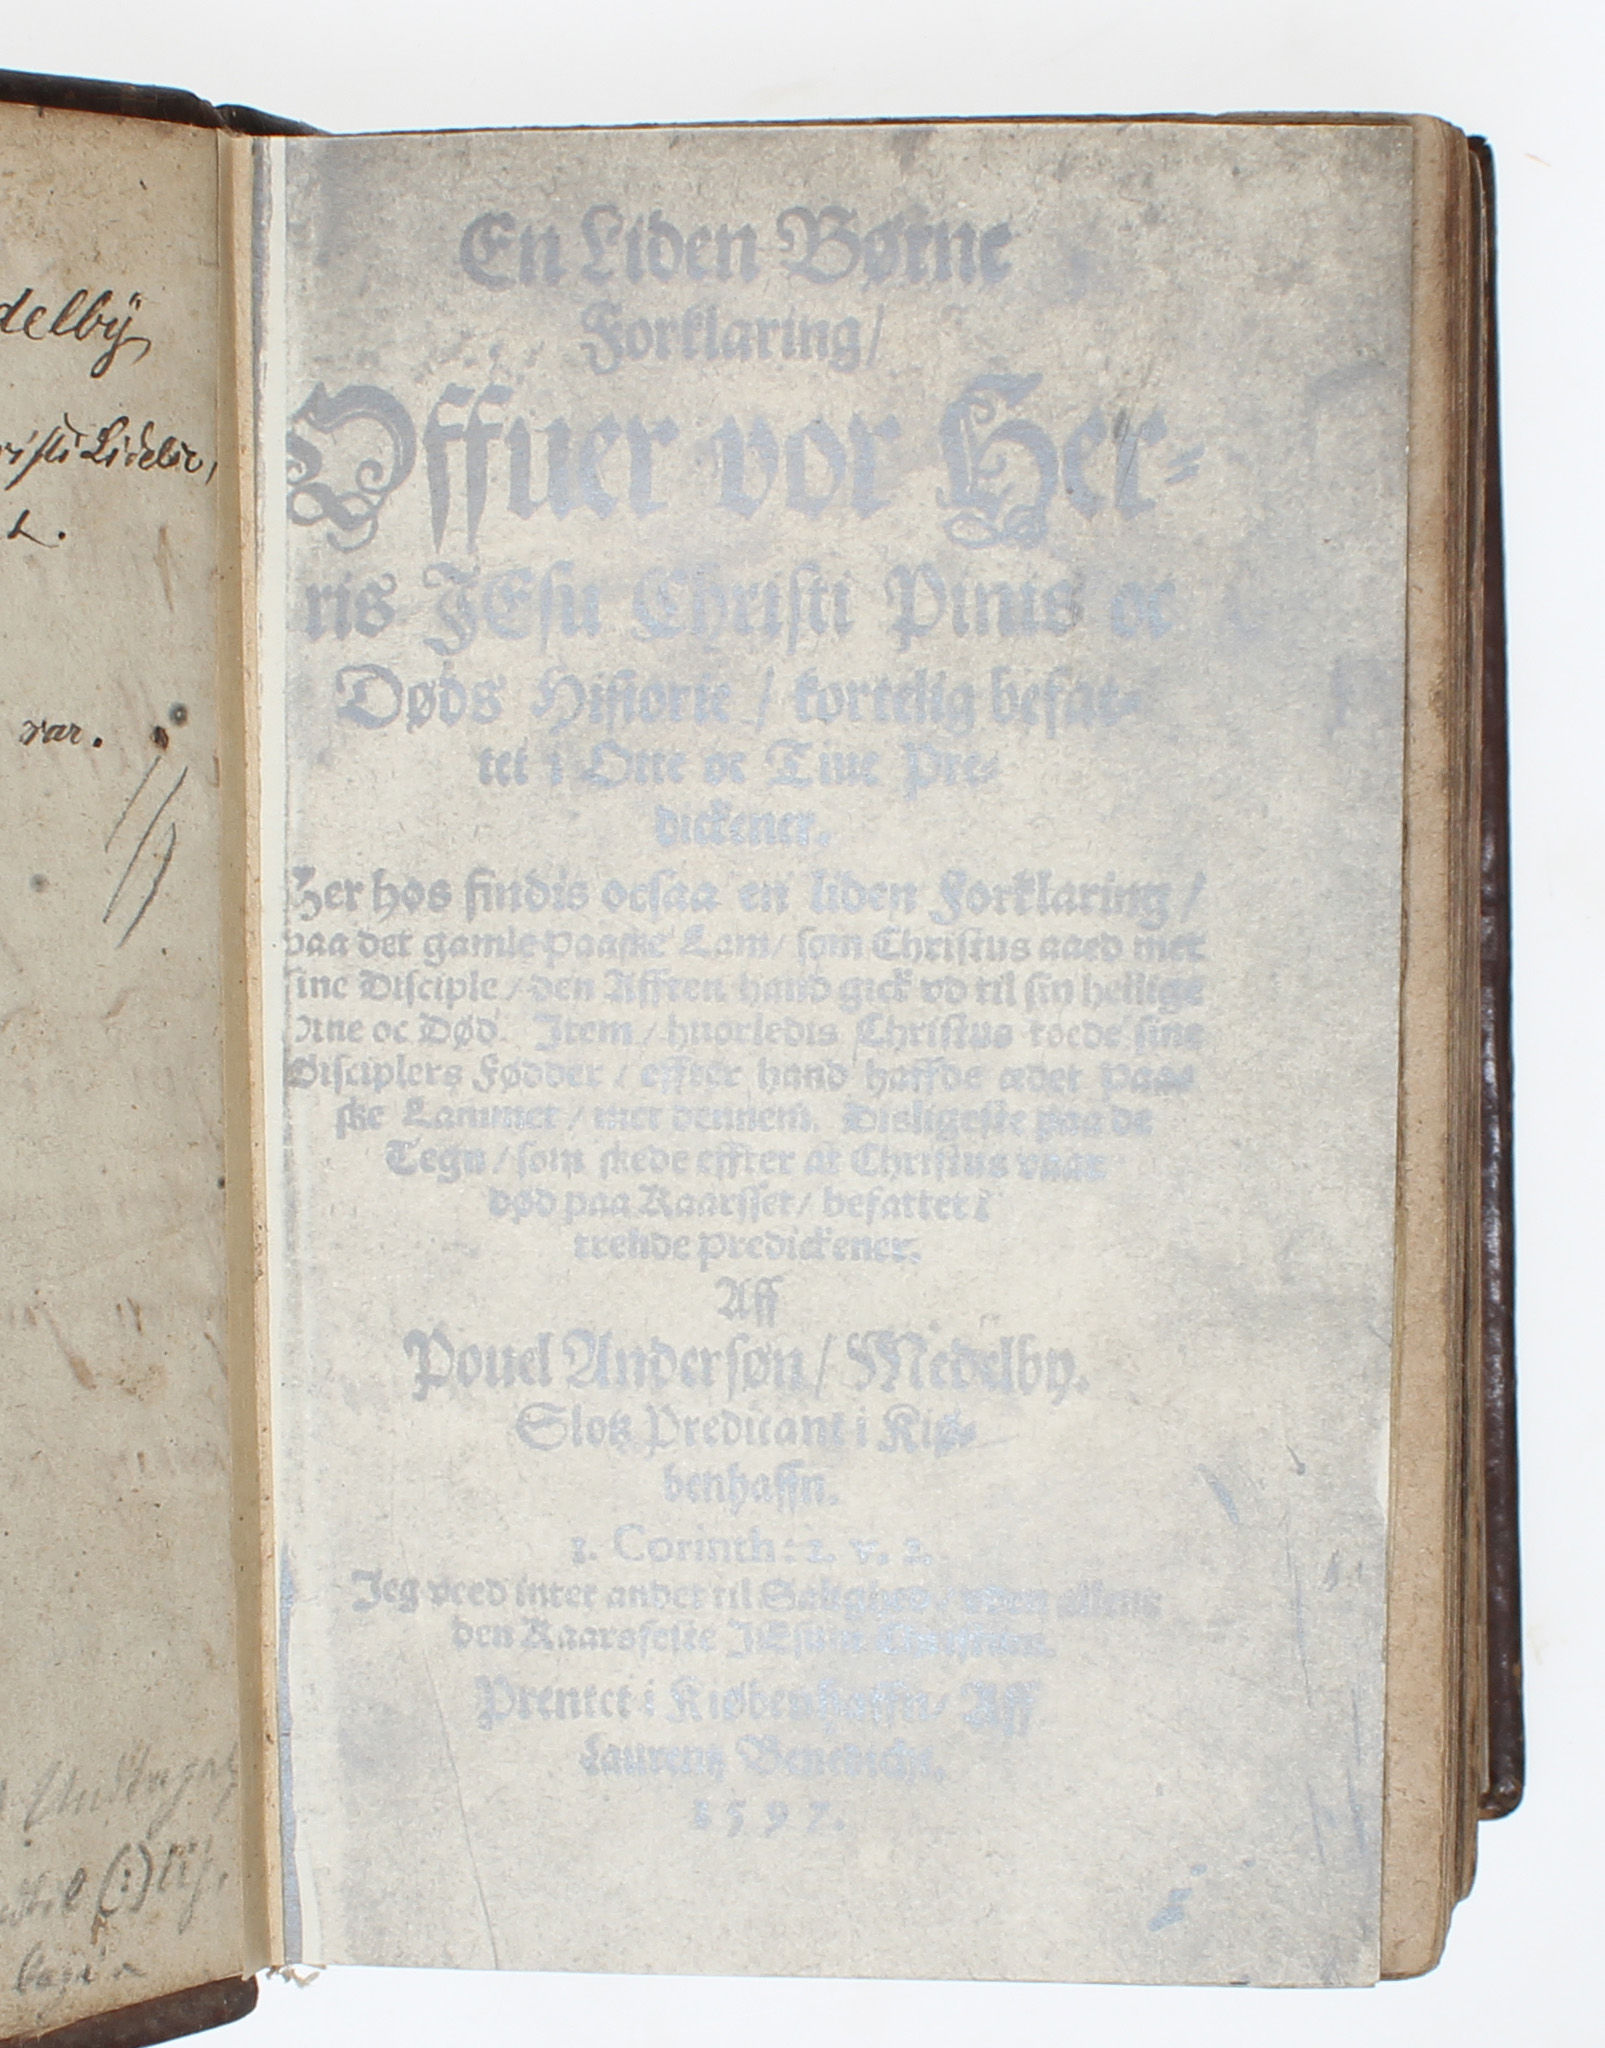 delbÿ
risti Lidelse,
rar.
En Liden Børne
Forklaring/
Offuer vor Her-
ris JEsu Christi Pinis oc
Døds Historie / kortelig befat-
tet i Otte oc Tiue Pre-
dickener.
Her hos findis ocsaa en liden Forklaring /
paa det gamle Paaske Lam/ som Christus aaed met
sine Disciple / den Afften hand gick vd til sin hellige
Pine oc Død. Item / huorledis Christus toede sine
Disciplers Fødder / effter hand haffde ædet Paa-
ske Lammet / met dennem. Disligeste paa de
Tegn / som skede effter at Christus vaar
død paa Kaarsset / befattet i
trende Predickener.
Aff
Pouel Andersøn / Medelby.
Slotz Predicant i Kiø-
benhaffn.
1. Corinth: 2. v. 2.
Jeg veed intet andet til Salighed / vden alene
den Kaarsfeste JEsum Christum.
Prentet i Kiøbenhaffn/ Aff
Laurentz Benedicht.
1597.